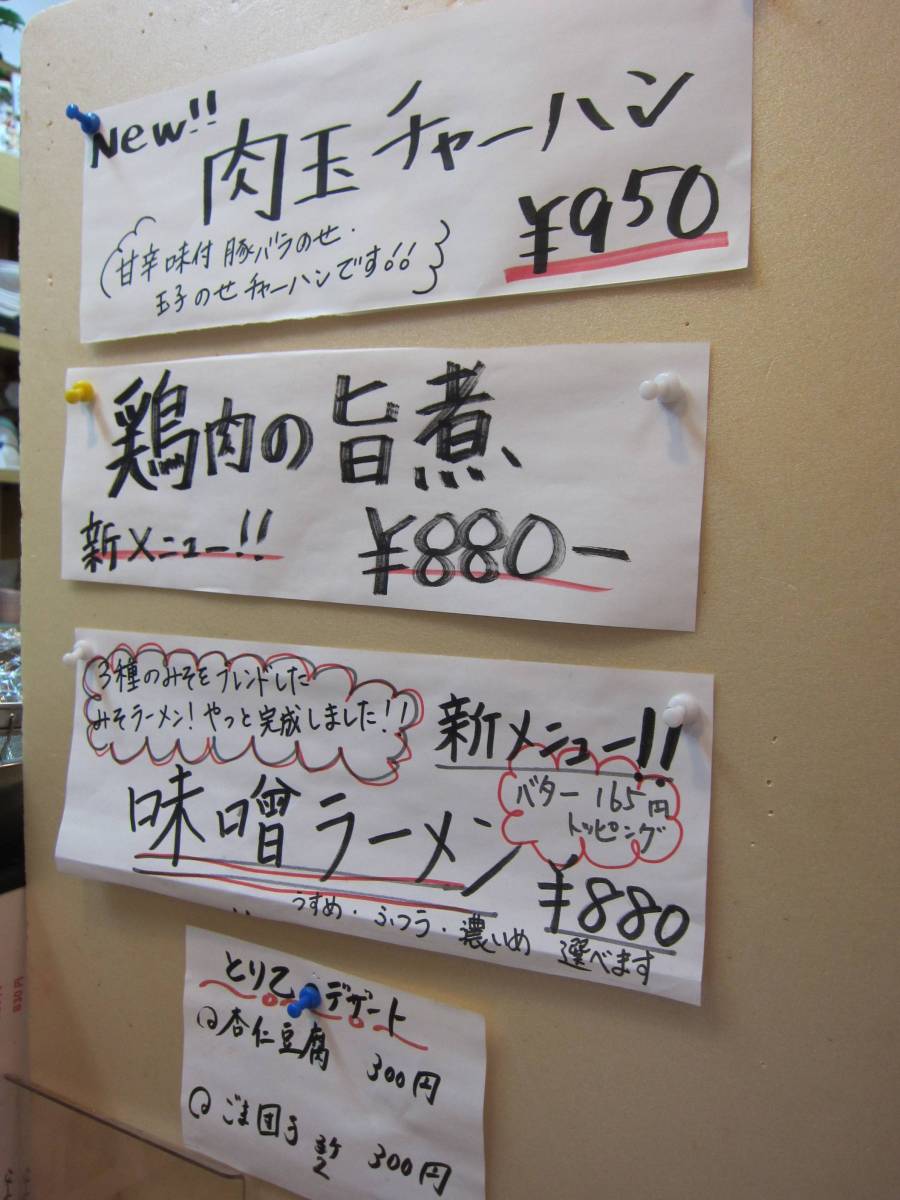 New!!
肉玉チャーハン
¥950
甘辛味付豚バラのせ・
玉子のせチャーハンです!!
鶏肉の旨煮
新メニュー!!
¥880-
3種のみそをブレンドした
みそラーメン!やっと完成しました!!
新メニュー!!
バター165円
トッピング
味噌ラーメン
¥880
うすめ・ふつう・濃いめ 選べます
とり乙 デザート
杏仁豆腐 300円
ごま団子 300円